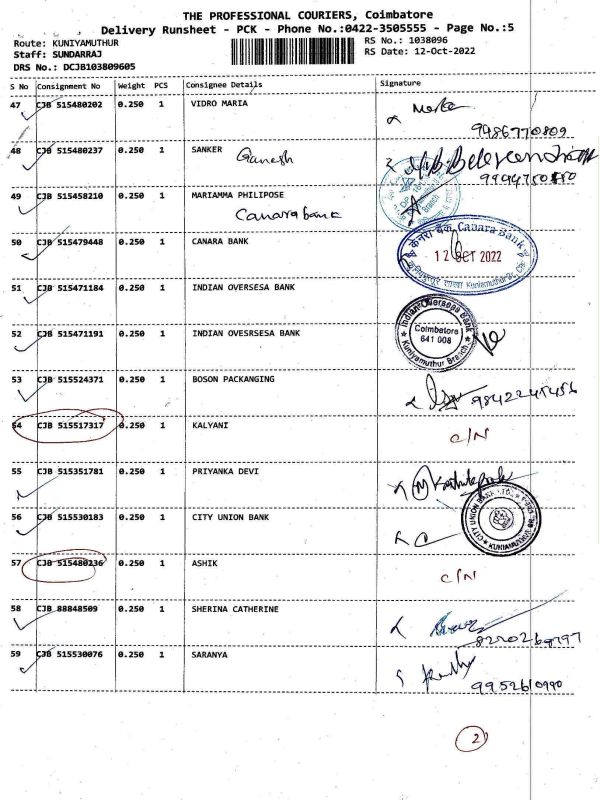 THE PROFESSIONAL COURIERS, Coimbatore
Delivery Runsheet - PCK - Phone No.:0422-3505555 - Page No.:5
Route: KUNIYAMUTHUR
RS No.: 1038096
Staff: SUNDARRAJ
RS Date: 12-Oct-2022
DRS No.: DCJB103809605
S No Consignment No Weight PCS Consignee Details Signature
47 CJB 515480202 0.250 1 VIDRO MARIA
9486770809
48 CJB 515480237 0.250 1 SANKER
Ganesh
49 CJB 515458210 0.250 1 MARIAMMA PHILIPOSE
Canara bank
50 CJB 515479448 0.250 1 CANARA BANK
केनरा बैंक Canara Bank
12 OCT 2022
51 CJB 515471184 0.250 1 INDIAN OVERSESA BANK
52 CJB 515471191 0.250 1 INDIAN OVESRSESA BANK
Indian Overseas Bank
Coimbatore
641 008
Kuniyamuthur Branch
53 CJB 515524371 0.250 1 BOSON PACKANGING
9842245456
54 CJB 515517317 0.250 1 KALYANI
C/N
55 CJB 515351781 0.250 1 PRIYANKA DEVI
56 CJB 515530183 0.250 1 CITY UNION BANK
CITY UNION BANK LTD.
KUNIAMUTHUR
57 CJB 515480236 0.250 1 ASHIK
C/N
58 CJB 88848509 0.250 1 SHERINA CATHERINE
8220269797
59 CJB 515530076 0.250 1 SARANYA
9952610990
2